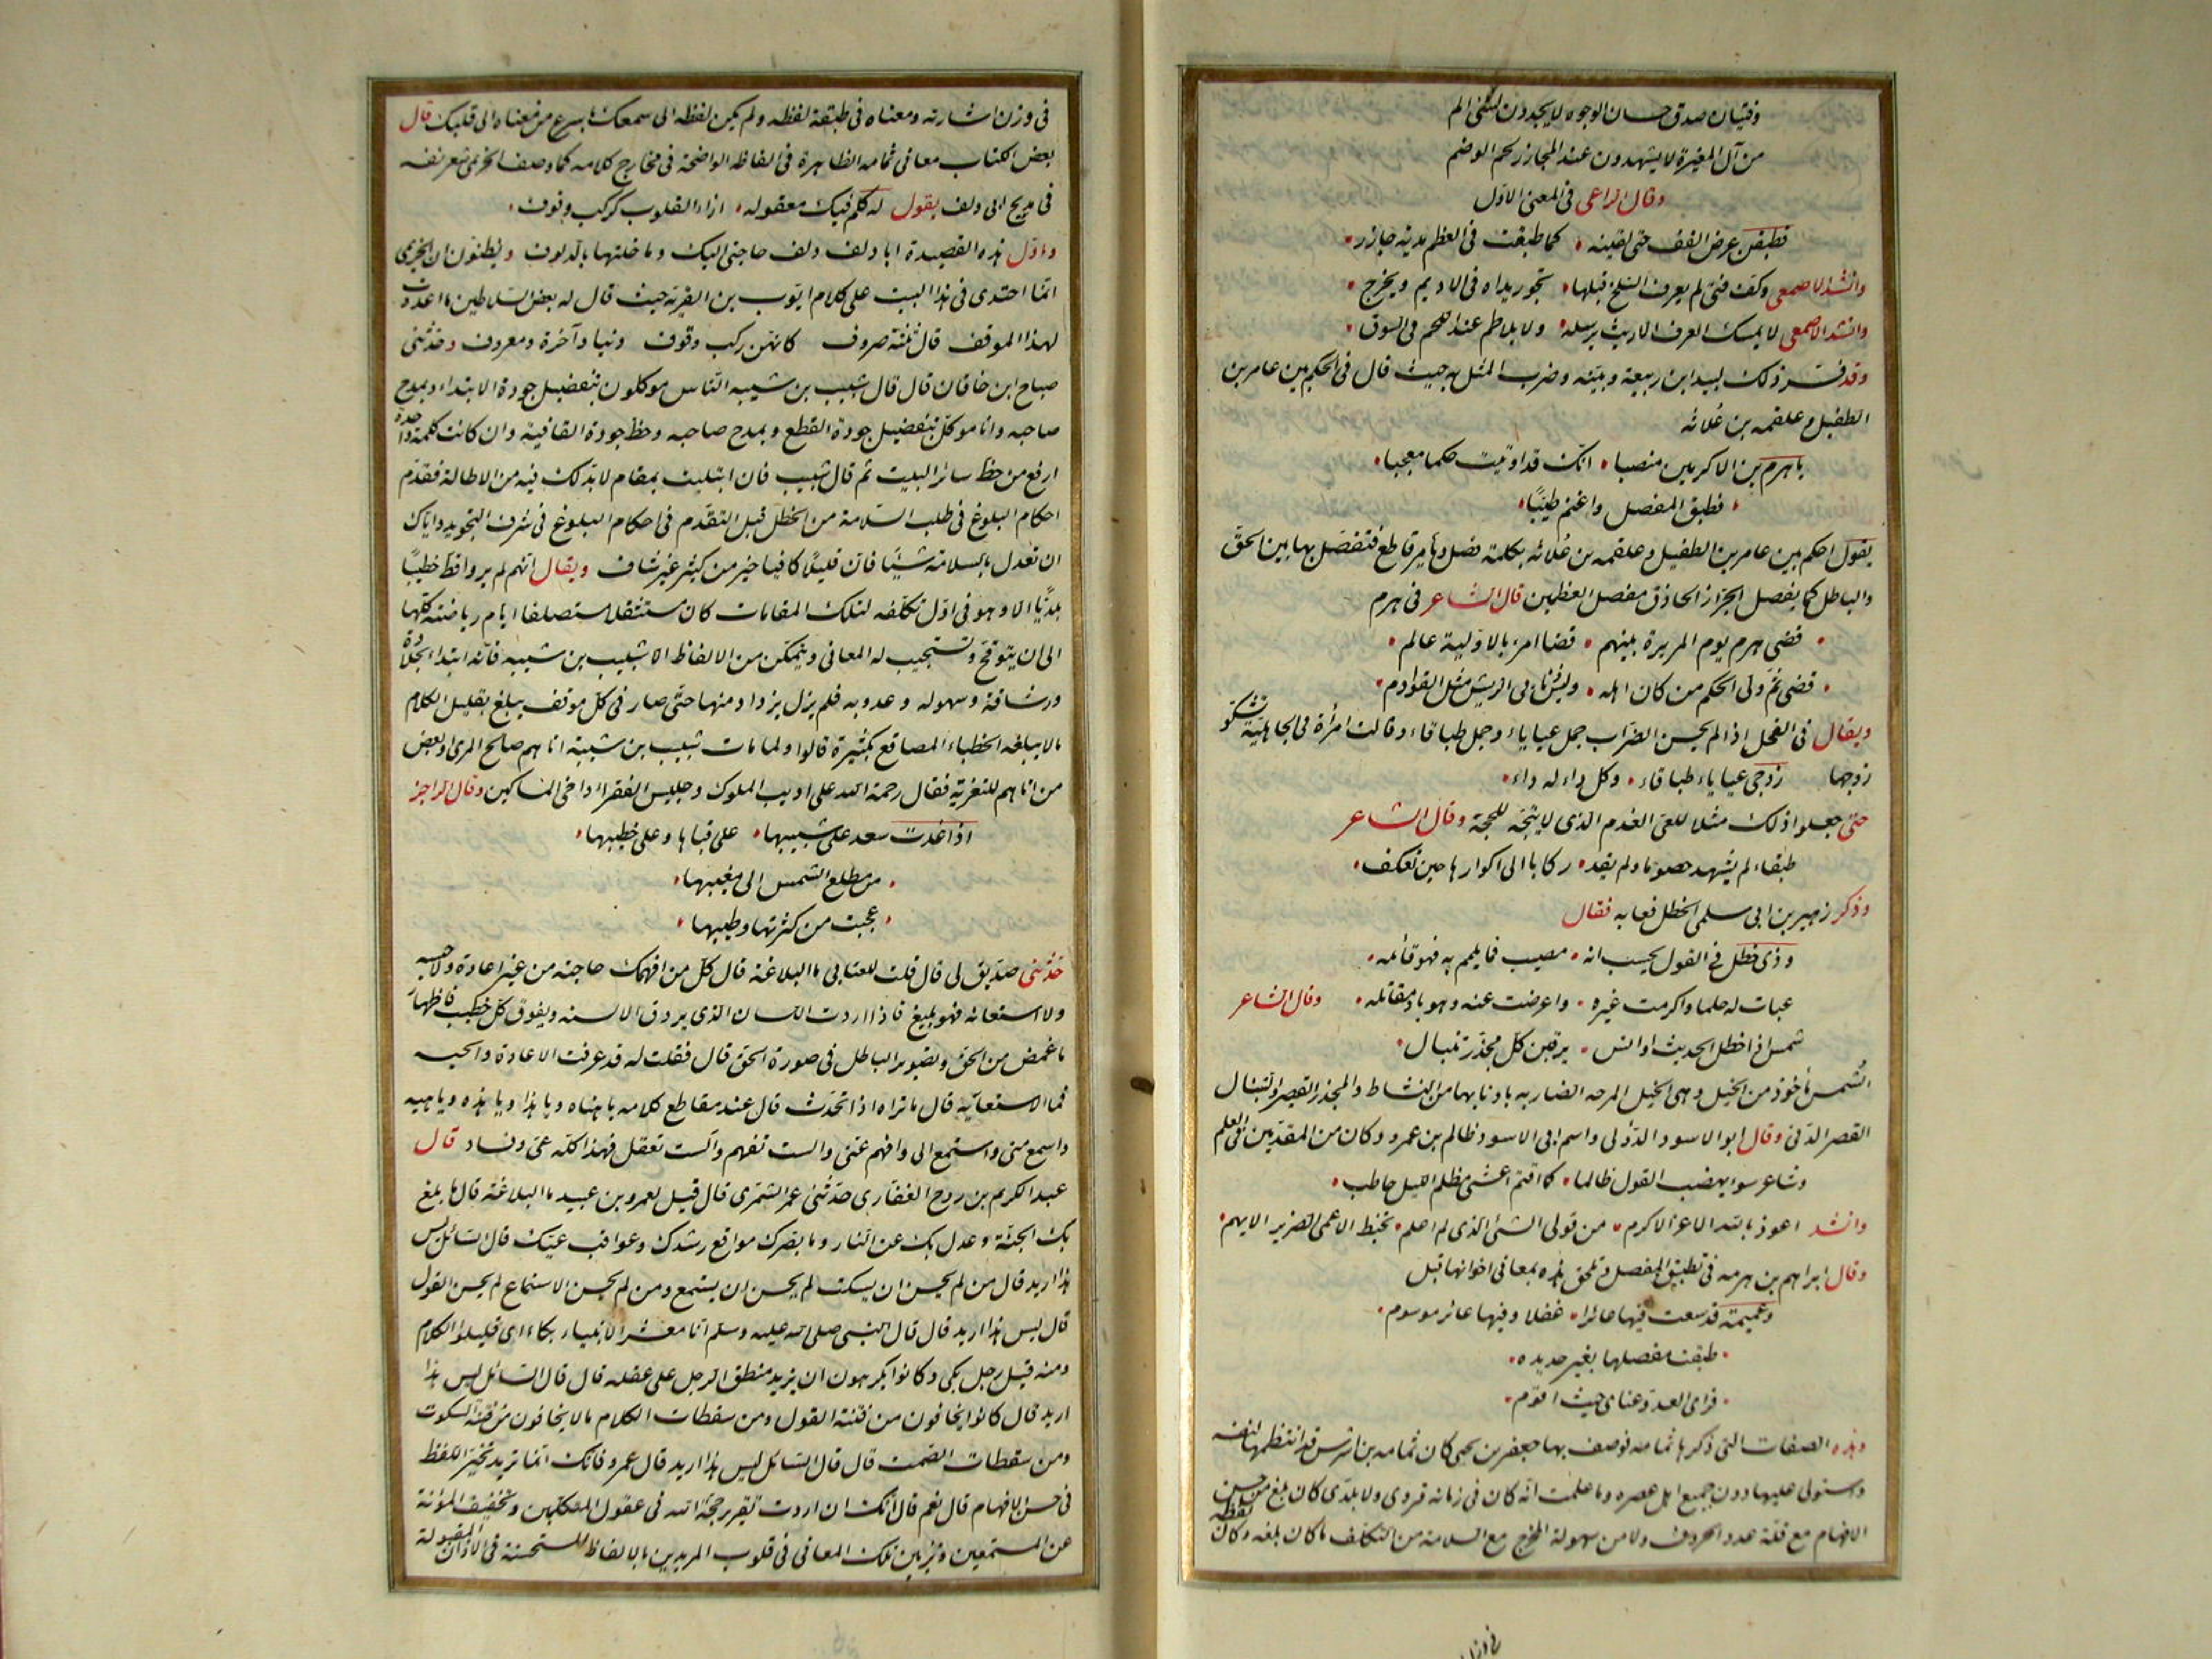 وفتيان صدق حسان الوجوه لا يجدون لشئ الم
من آل المغيرة لا يشهدون عند المجازر لحم الوضم
وقال الراعى فى المعنى الاول
فطبقن عرض القف حتى لقينه كما طبقت فى العظم مدية جازر
وانشد الاصمعى وكف فتى لم يعرف السلخ قبلها تجور يداه فى الاديم ويخرج
وانشد الاصمعى لا يمسك العرف الا ريث يرسله ولا يلاطم عند اللحم فى السوق
وقد فسر ذلك لبيد ابن ربيعة وبينه وضرب المثل به حيث قال فى الحكم بين عامر بن
الطفيل وعلقمه بن علاثه
يا هرم بن الاكرمين منصبا انك قد اوتيت حكما معجبا
فطبق المفصل واغنم طيبًا
يقول احكم بين عامر بن الطفيل وعلقمه بن علاثه بكلمة فصل وبأمر قاطع فتفصل بها بين الحق
والباطل كما يفصل الجزار الحاذق مفصل العظمين قال الشاعر فى هرم
قضى هرم يوم المريرة بينهم قضا امرء بالاولية عالم
قضى ثم ولى الحكم من كان اهله وليس ذنابى الريش مثل القوادم
ويقال فى الفحل اذا لم يحسن الضراب جمل عياياء وجمل طباقاء وقالت امرأة فى الجاهلية تشكو
زوجها زوجى عياياء طباقاء وكل داء له داء
حتى جعلوا ذلك مثلا للعى الفدم الذى لا يتجه للحجة وقال الشاعر
طبقاء لم يشهد خصوما ولم يقد ركابا الى اكوارها حين تعكف
وذكر زهير بن ابى سلمى الخطل فعابه فقال
وذى خطل فى القول يحسب انه مصيب فما يلمم به فهو قائله
عبات له حلما واكرمت غيره واعرضت عنه وهو باد مقاتله وقال الشاعر
شمس اذا خطل الحديث اوانس يرقبن كل مجذر تنبال
الشمس مأخوذ من الخيل وهى الخيل المرحه الضاربه باذنابها من النشاط والمجذر القصير والتنبال
القصر الدنى وقال ابو الاسود الدؤلى واسم ابى الاسود ظالم بن عمرو وكان من المقدمين فى العلم
وشاعر سوء يهضب القول ظالما كما اقتم اعشى مظلم الليل حاطب
وانشد اعوذ بالله الاعز الاكرم من قولى الشئ الذى لم اعلم تخبط الاعمى الضرير الايهم
وقال ابراهيم بن هرمه فى تطبيق المفصل وتلحق هذه بمعانى اخوانها قبل
وعميمة قد سعت فيها عائرا غفلا وفيها عائر موسوم
طبقت مفصلها بغير حديده
فراى العدو عناى حيث اقوم
وهذه الصفات التى ذكرها ثمامه فوصف بها جعفر بن يحيى كان ثمامه بن اشرس قد انتظمها لنفسه
واستولى عليها دون جميع اهل عصره وما علمت انه كان فى زمانه قروى ولا بلدى كان بلغ من حسن
الافهام مع قلة عدد الحروف ولا من سهولة المخرج مع السلامة من التكلف ما كان بلغه وكان لفظه
فى وزن
فى وزن اشارته ومعناه فى طبقة لفظه ولم يكن لفظه الى سمعك باسرع من معناه الى قلبك قال
بعض الكتاب معانى ثمامه الظاهرة فى الفاظه الواضحة فى مخارج كلامه كما وصف الخريمى شعر نفسه
فى مديح ابى دلف يقول له كلم فيك معقوله ازاء القلوب كركب وقوف
واول هذه القصيدة ابا دلف دلف حاجتى اليك وما خلتها بالدلوف ويظنون ان الخريمى
انما احتذى فى هذا البيت على كلام ايوب بن القرية حيث قال له بعض السلاطين ما اعددت
لهذا الموقف قال ثلثة صروف كانهن ركب وقوف دنيا وآخرة ومعروف وحدثنى
صباح ابن خاقان قال قال شبيب بن شيبه الناس موكلون بتفضيل جودة الابتداء وبمدح
صاحبه وانا موكل بتفضيل جودة القطع وبمدح صاحبه وحظ جودة القافية وان كانت كلمة واحدة
ارفع من حظ سائر البيت ثم قال شبيب فان ابتليت بمقام لا بد لك فيه من الاطالة فقدم
احكام البلوغ فى طلب السلامة من الخطل قبل التقدم فى احكام البلوغ فى شرف التجويد واياك
ان تعدل بالسلامة شيئا فان قليلا كافيا خير من كثير غير شاف ويقال انهم لم يروا قط خطيبًا
بلديًا الا وهو فى اول تكلفه لتلك المقامات كان مستثقلا مستصلفا ايام رياضته كلها
الى ان يتوقح وتستجيب له المعانى ويتمكن من الالفاظ الا شبيب بن شيبه فانه ابتدا بحلاوة
ورشاقة وسهوله وعذوبه فلم يزل يزداد منها حتى صار فى كل موقف يبلغ بقليل الكلام
ما لا يبلغه الخطباء المصاقع بكثيرة قالوا ولما مات شبيب بن شيبة اتاهم صالح المرى او بعض
من اتاهم للتعزية فقال رحمة الله على اديب الملوك وجليس الفقراء واخى المساكين وقال الراجز
اذا غدت سعد على شبيبها على فتاها وعلى خطيبها
من مطلع الشمس الى مغيبها
عجبت من كثرتها وطيبها
حدثنى صديق لى قال قلت للعتابى ما البلاغة قال كل من افهمك حاجته من غير اعادة ولا حبسه
ولا استعانه فهو بليغ فاذا اردت اللسان الذى يروق الالسنه ويفوق كل خطيب فاظهار
ما غمض من الحق وتصوير الباطل فى صورة الحق قال فقلت له قد عرفت الاعادة والحبسه
فما الاستعانه قال ما تراه اذا تحدث قال عند مقاطع كلامه يا هناه ويا هذا ويا هذه ويا هيه
واسمع منى واستمع الى وافهم عنى والست تفهم والست تعقل فهذا كله عى وفساد قال
عبد الكريم بن روح الغفارى حدثنى عمر الشمرى قال قيل لعمرو بن عبيد ما البلاغة قال ما بلغ
بك الجنة وعدل بك عن النار وما بصرك مواقع رشدك وعواقب غيك قال السائل ليس
هذا اريد قال من لم يحسن ان يسكت لم يحسن ان يستمع ومن لم يحسن الاستماع لم يحسن القول
قال ليس هذا اريد قال قال النبى صلى الله عليه وسلم انا معشر الانبياء بكاء اى قليلو الكلام
ومنه قيل رجل بكى وكانوا يكرهون ان يزيد منطق الرجل على عقله قال قال السائل ليس هذا
اريد قال كانوا يخافون من فتنة القول ومن سقطات الكلام ما لا يخافون من فتنة السكوت
ومن سقطات الصمت قال قال السائل ليس هذا اريد قال عمرو فانك انما تريد تخير اللفظ
فى حسن الافهام قال نعم قال انك ان اردت تقرير حجة الله فى عقول المكلفين وتخفيف المؤنة
عن المستمعين وتزيين تلك المعانى فى قلوب المريدين بالالفاظ المستحسنة فى الآذان المقبولة